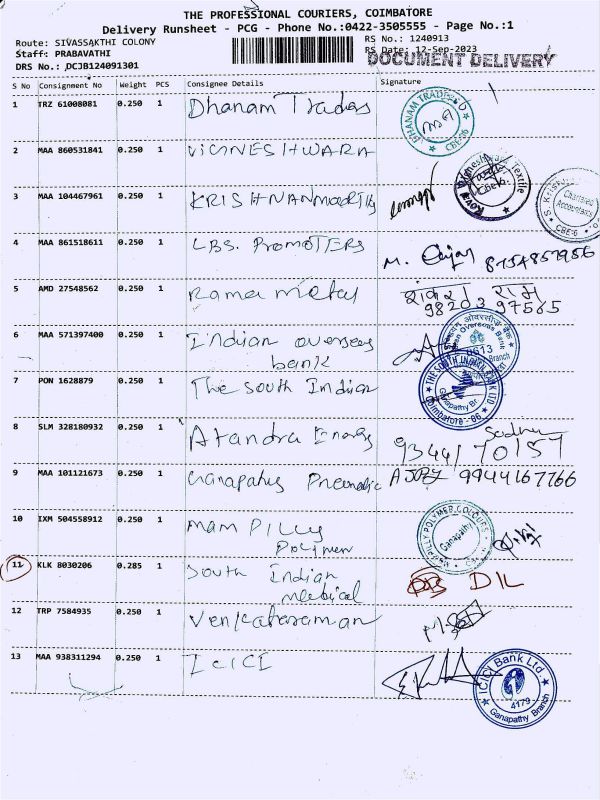 THE PROFESSIONAL COURIERS, COIMBATORE
Delivery Runsheet - PCG - Phone No.:0422-3505555 - Page No.:1
Route: SIVASSAKTHI COLONY
RS No.: 1240913
Staff: PRABAVATHI
RS Date: 12-Sep-2023
DOCUMENT DELIVERY
DRS No.: DCJB124091301
S No Consignment No Weight PCS Consignee Details Signature
1 TRZ 61008081 0.250 1 Dhanam Trades
DHANAM TRADERS CBE-6
2 MAA 860531841 0.250 1 VIGNESHWARA
Textile
3 MAA 104467961 0.250 1 KRISHNANMOORTHY
Chartered Accountants CBE-6
4 MAA 861518611 0.250 1 LBS. PROMOTERS M. 8754857956
5 AMD 27548562 0.250 1 Rama Metal शंकरा राम
98203 97565
6 MAA 571397400 0.250 1 Indian overseas
bank
Indian Overseas Bank
0613 Branch
7 PON 1628879 0.250 1 The South Indian
THE SOUTH INDIAN BANK LTD
Ganapathy Br.
Coimbatore - 06
8 SLM 328180932 0.250 1 Atandra Energy Sadhu
9344170157
9 MAA 101121673 0.250 1 Ganapathy Pneumatic AJAY 9944167766
10 IXM 504558912 0.250 1 Mam PILLY
Polymer
POLYMER COLOURS
Ganapathi
11 KLK 8030206 0.285 1 South Indian
medical
D/L
12 TRP 7584935 0.250 1 Venkataraman
13 MAA 938311294 0.250 1 ICICI
ICICI Bank Ltd.
4179
Ganapathy Branch